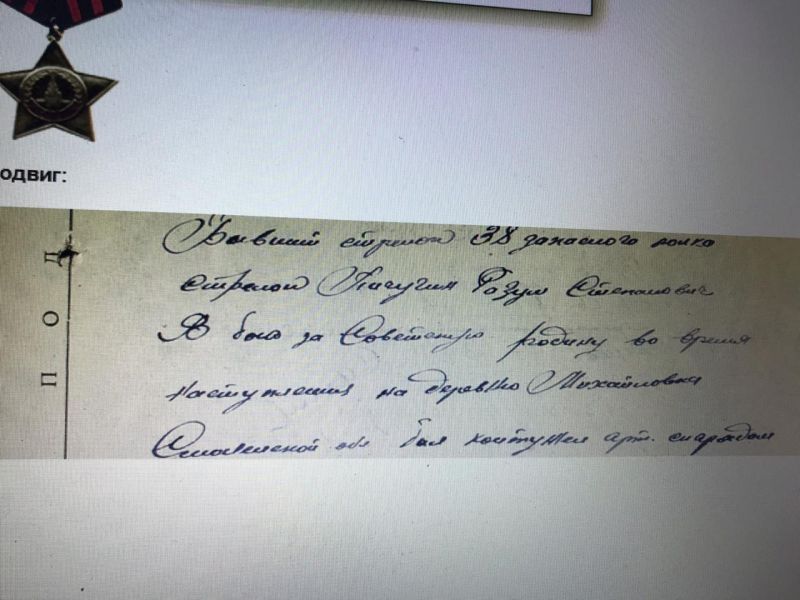 одвиг:
ПОД
Бывший стрелок 38 запасного полка
стрелок Пичугин Разум Степанович
В бою за Советскую родину во время
наступления на деревню Михайловка
Смоленской обл был контужен арт. снарядом